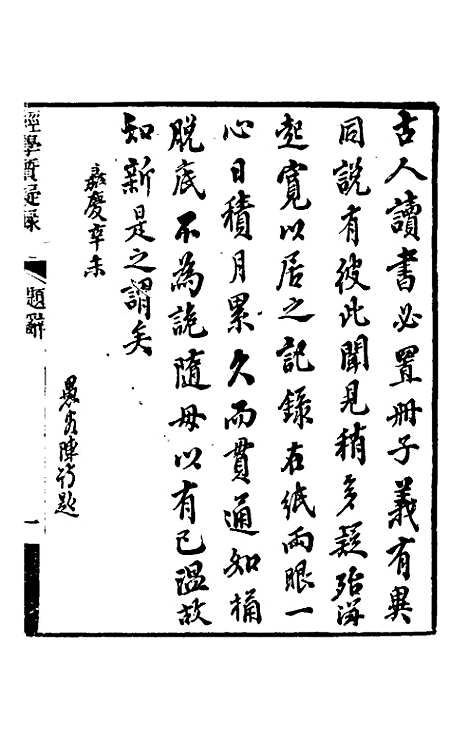 古人讀書必置冊子義有異
同說有彼此聞見稍多疑殆
起寬以居之記錄在紙兩眼一
心日積月累久而貫通如桶
脫底不為詭隨毋以有已溫故
知新是之謂矣
嘉慶辛未
愚弟陳
題
經學質疑錄
題辭
一